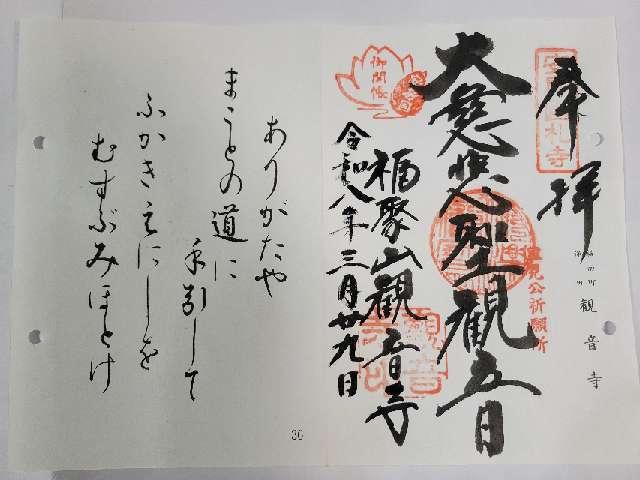 奉拝
大慈悲聖観音
福聚山観音寺
令和八年三月廿九日
御開帳
里見公祈願所
観音寺
ありがたや
まことの道に
手引して
ふかきえにしを
むすぶみほとけ
30